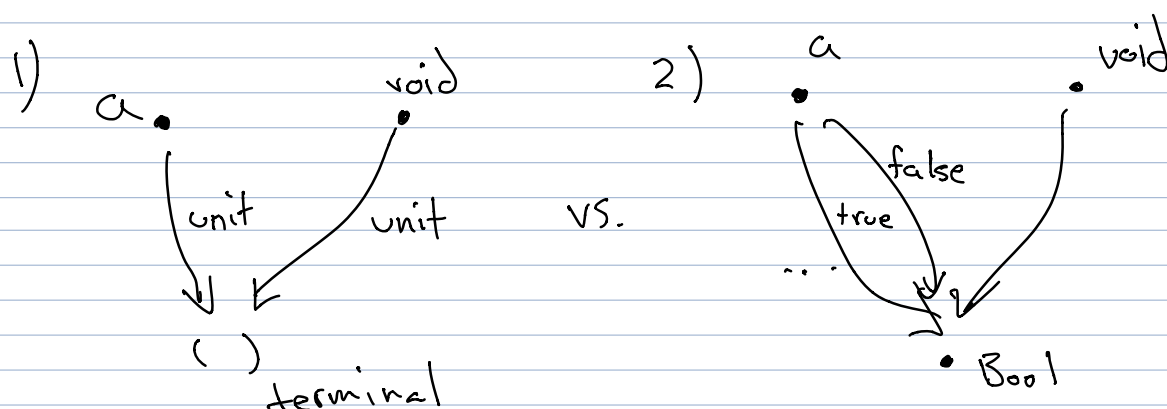 1)
a
void
unit
unit
( )
terminal
vs.
2)
a
void
false
true
...
Bool